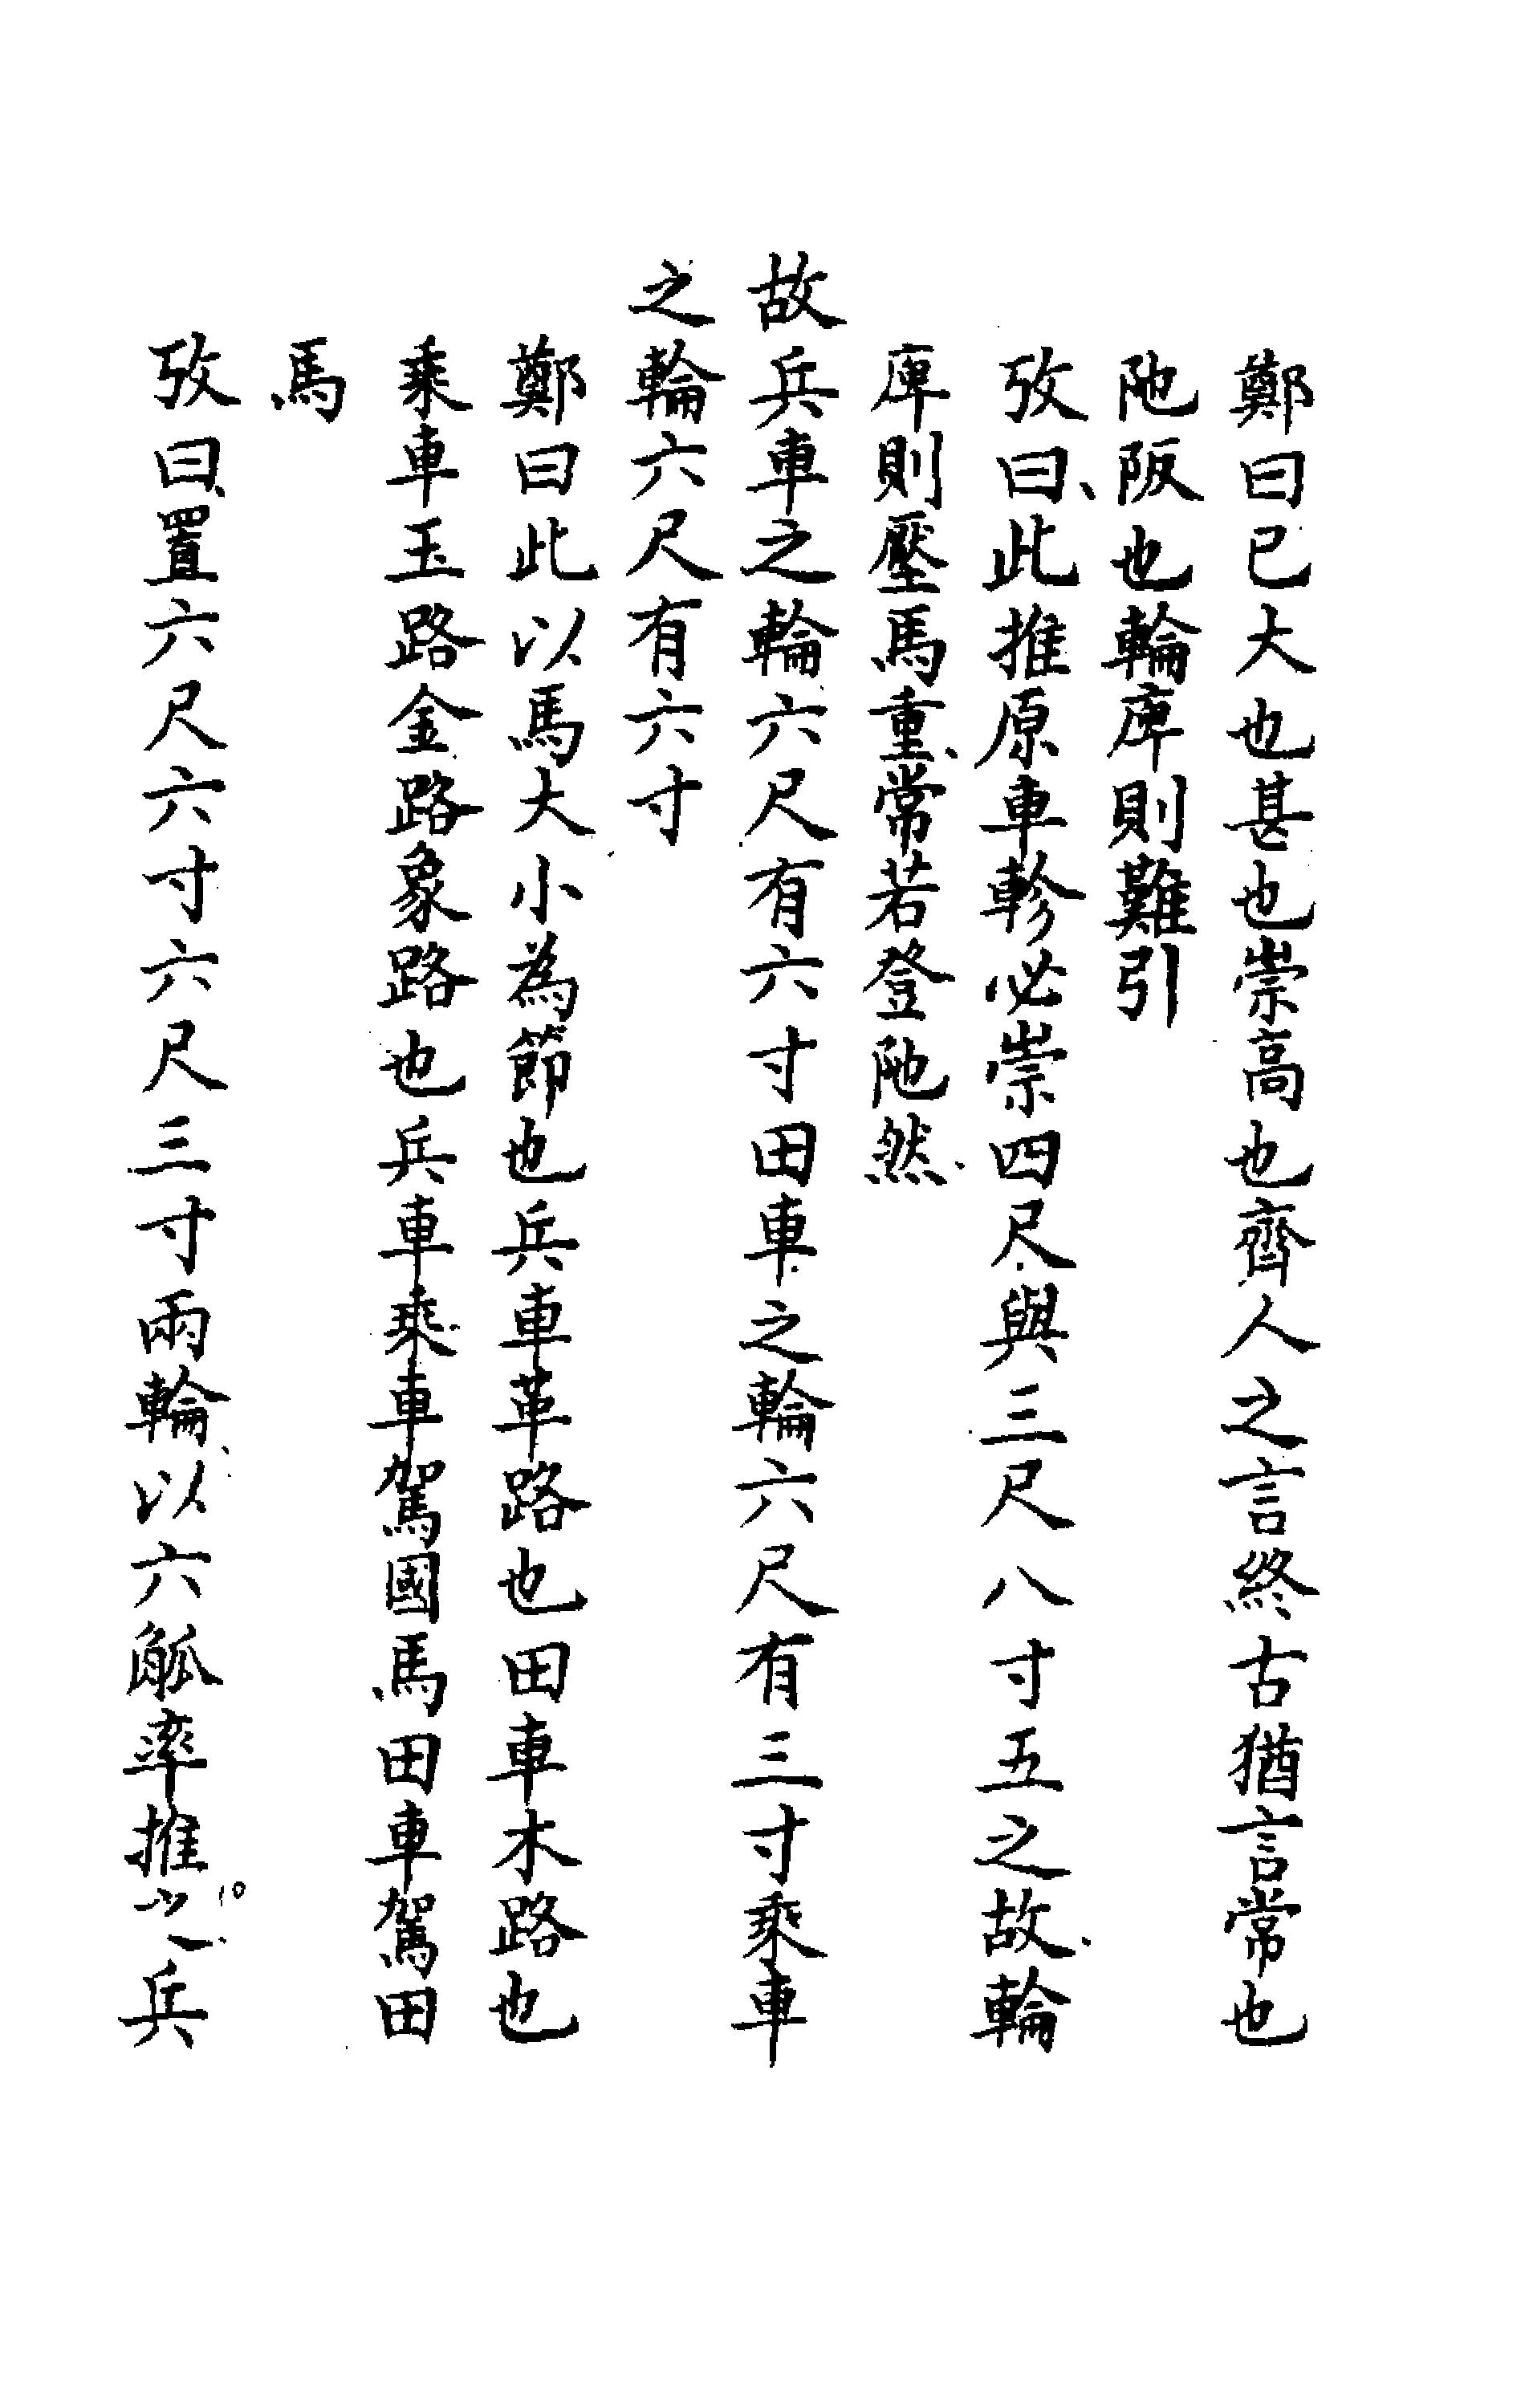 鄭曰已大也甚也崇高也齊人之言終古猶言常也
阤阪也輪庳則難引
攷曰、此推原車軫必崇四尺與三尺八寸五之故輪
庳則壓馬重、常若登阤然
故兵車之輪六尺有六寸田車之輪六尺有三寸乘車
之輪六尺有六寸
鄭曰此以馬大小為節也兵車革路也田車木路也
乘車玉路金路象路也兵車乘車駕國馬田車駕田
馬
攷曰、置六尺六寸六尺三寸兩輪、以六觚率推之兵